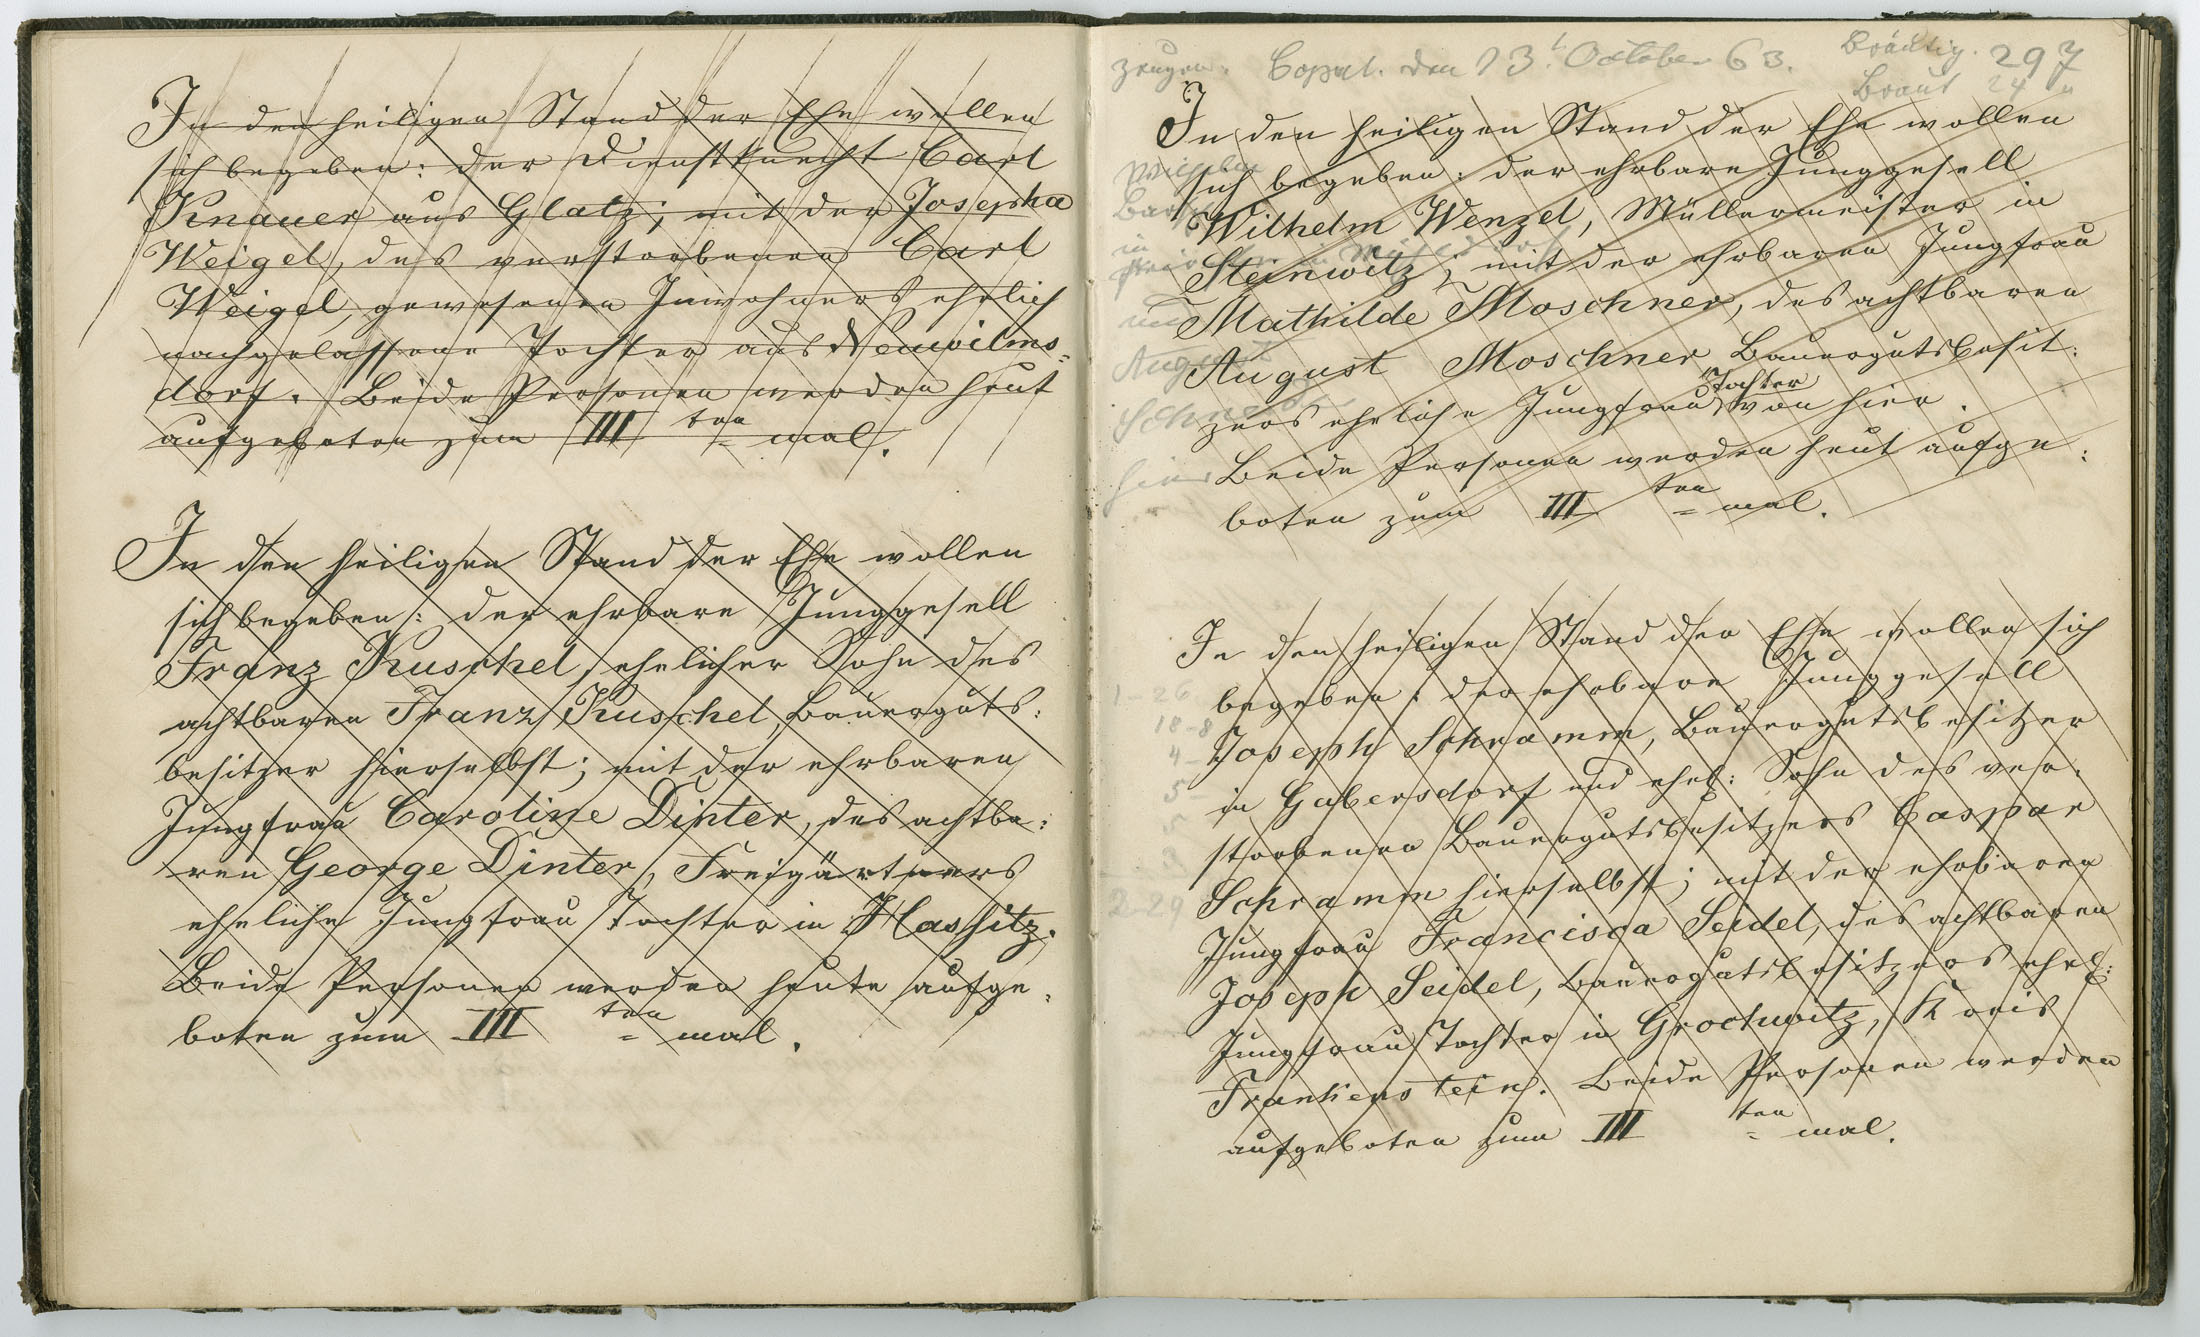 In den heiligen Stand der Ehe wollen
sich begeben: der Dienstknecht Carl
Knauer aus Glatz; mit der Josepha
Weigel, des verstorbenen Carl
Weigel, gewesenen Inwohners ehrlich
nachgelassene Tochter aus Neuwilms-
dorf. Beide Personen werden heut
aufgeboten zum III ten mal.
In den heiligen Stand der Ehe wollen
sich begeben: der ehrbare Junggesell
Franz Kuschel, ehelicher Sohn des
achtbaren Franz Kuschel, Bauerguts:
besitzer hierselbst; mit der ehrbaren
Jungfrau Caroline Dinter, des achtba:
ren George Dinter, Freigärtners
eheliche Jungfrau Tochter in Hassitz.
Beide Personen werden heute aufge:
boten zum III ten = mal.
Zeugen. Copul. den 13t October 63. Bräutig. 29 J
Braut 24 "
In den heiligen Stand der Ehe wollen
sich begeben: der ehrbare Junggesell
Wilhelm Wenzel, Müllermeister in
Steinwitz; mit der ehrbaren Jungfrau
Mathilde Moschner, des achtbaren
August Moschner Bauergutsbesit:
zers eheliche Jungfrau Tochter von hier.
Beide Personen werden heut aufge:
boten zum III ten = mal.
Wilhelm
in
und
August
hier
In den heiligen Stand der Ehe wollen sich
begeben: der ehrbare Junggesell
Joseph Schramm, Bauergutsbesitzer
in Gabersdorf und ehel: Sohn des ver:
storbenen Bauergutsbesitzers Caspar
Schramm hierselbst; mit der ehrbaren
Jungfrau Francisca Seidel, des achtbaren
Joseph Seidel, Bauergutsbesitzers ehel:
Jungfrau Tochter in Grochwitz, Kreis
Frankenstein. Beide Personen werden
aufgeboten zum III ten = mal.
1 26
18-8
4
5
5
2 29